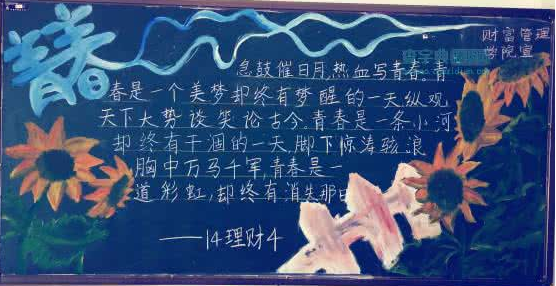 青春
财富管理
学院宣
急鼓催日月,热血写青春。青
春是一个美梦却终有梦醒的一天,纵观
天下大势谈笑论古今。青春是一条小河
却终有干涸的一天,脚下惊涛骇浪
胸中万马千军,青春是一
道彩虹,却终有消失那日
——14理财4